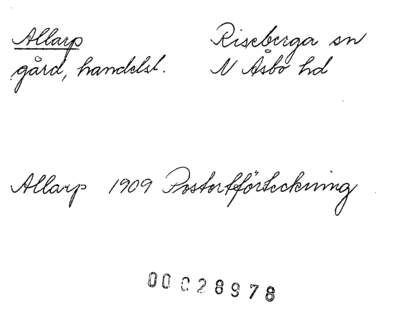 Allarp Riseberga sn
gård, handelsl. N Åsbo hd
Allarp 1909 Postortförteckning
00028978